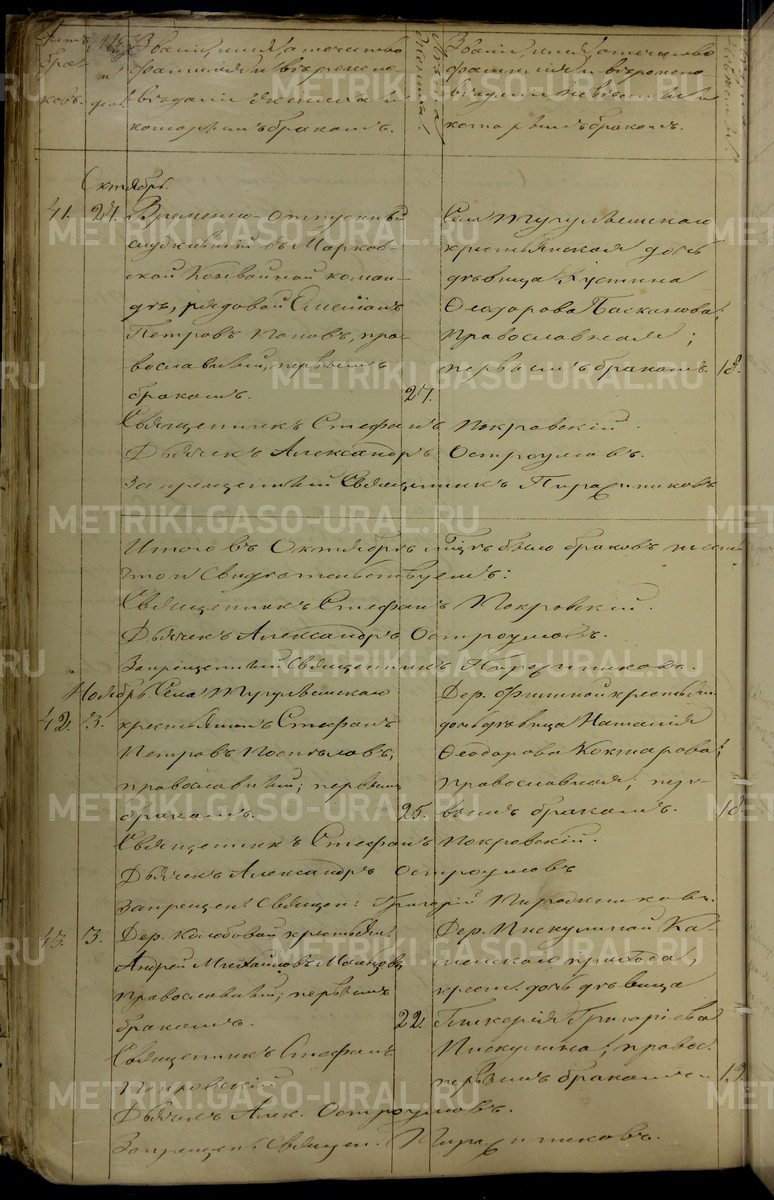 Званіе, имя, отечество
фамилія и вѣроиспо
вѣданіе жениха и
которымъ бракомъ.
Званіе, имя, отечество
фамилія и вѣроиспо
вѣданіе невѣсты и
которымъ бракомъ.
Октябрь
41. 27. Временно-отпускный
служившій въ Марков-
ской Конвойной коман-
дѣ, рядовой
Петровъ Поповъ, пра-
вославный, первымъ
бракомъ. 27.
Села Тугулымскаго
крестьянская дочь
дѣвица Іустина
Ѳеодорова
православная;
первымъ бракомъ. 18.
Священникъ Стефанъ Покровскій.
Дьячекъ Александръ Остроумовъ.
Запрещенный Священникъ
Итого въ Октябрѣ мѣсяцѣ было браковъ
что и свидѣтельствуемъ:
Священникъ Стефанъ Покровскій.
Дьячекъ Александръ Остроумовъ.
Запрещенный Священникъ
Ноябрь
42. 3. Села Тугулымскаго
крестьянинъ Стефанъ
Петровъ Поспѣловъ,
православный; первымъ
бракомъ. 25.
Дер. крестьян.
дочь дѣвица Наталія
Ѳеодорова Кокшарова,
православная; пер-
вымъ бракомъ. 18
Священникъ Стефанъ Покровскій.
Дьячекъ Александръ Остроумовъ
Запрещен. Священ. Григорій
43. 3. Дер. Колобовой крестьян.
Андрей Михайловъ
православный; первымъ
бракомъ. 22.
Дер. Пискулиной Ка-
менскаго прихода,
крест. дочь дѣвица
Гликерія Григоріева
Пискулина, правос.
первымъ бракомъ 19
Священникъ Стефанъ
Покровскій
Дьячекъ Алек. Остроумовъ.
Запрещен. Священ.
METRIKI.GASO-URAL.RU